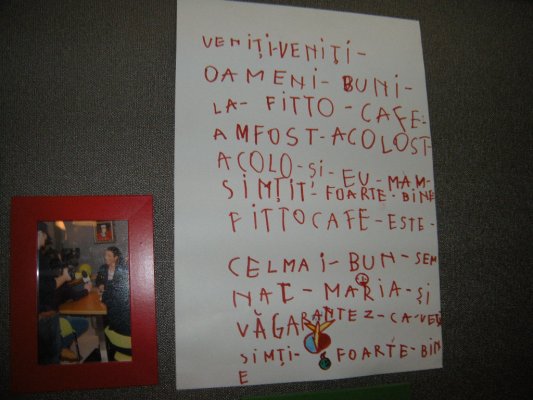 VENIȚI-VENIȚI-
OAMENI-BUNI-
LA-FITTO-CAFE-
AMFOST-ACOLOST-
ACOLO-ȘI-EU-MAM-
SIMȚIT-FOARTE-BINE
FITTOCAFE-ESTE-
CELMAI-BUN-SEM
NAT-MARIA-ȘI
VĂGARANTEZ-CA-VEȚI
SIMȚI-FOARTE-BIN
E